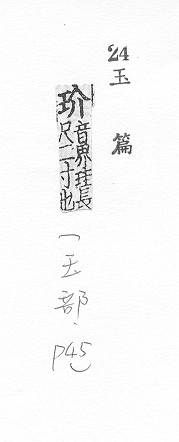 24
玉篇
玠音界珪長
尺二寸也
(玉部.
P45)